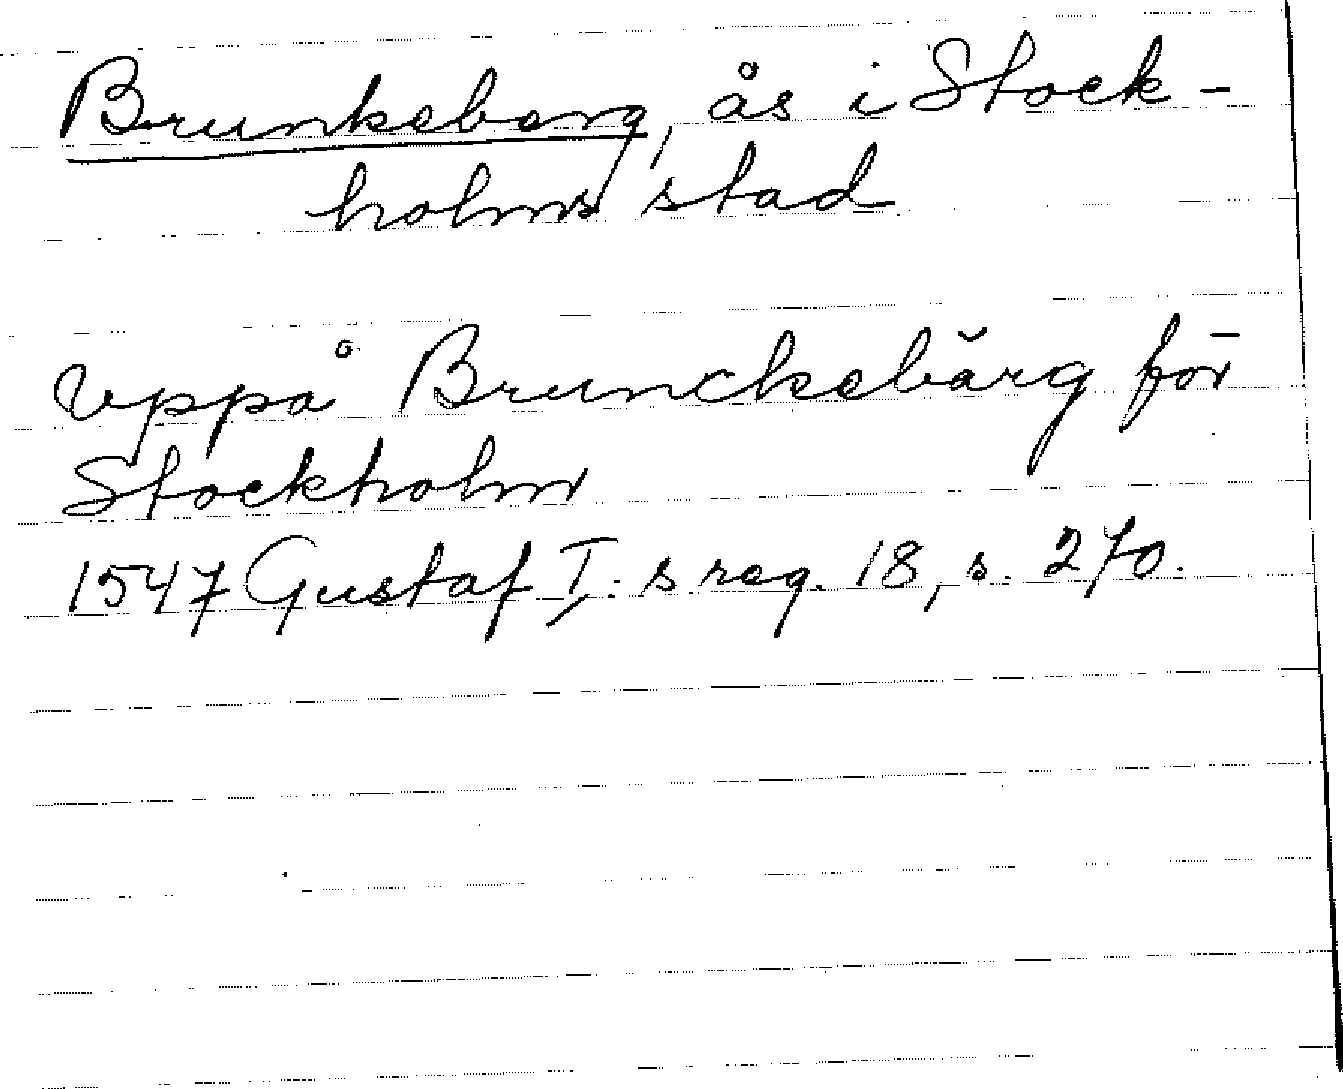 Brunkeberg, ås i Stock-
holms stad
uppå Brunckebärg för
Stockholm
1547 Gustaf I:s reg. 18, s. 270.